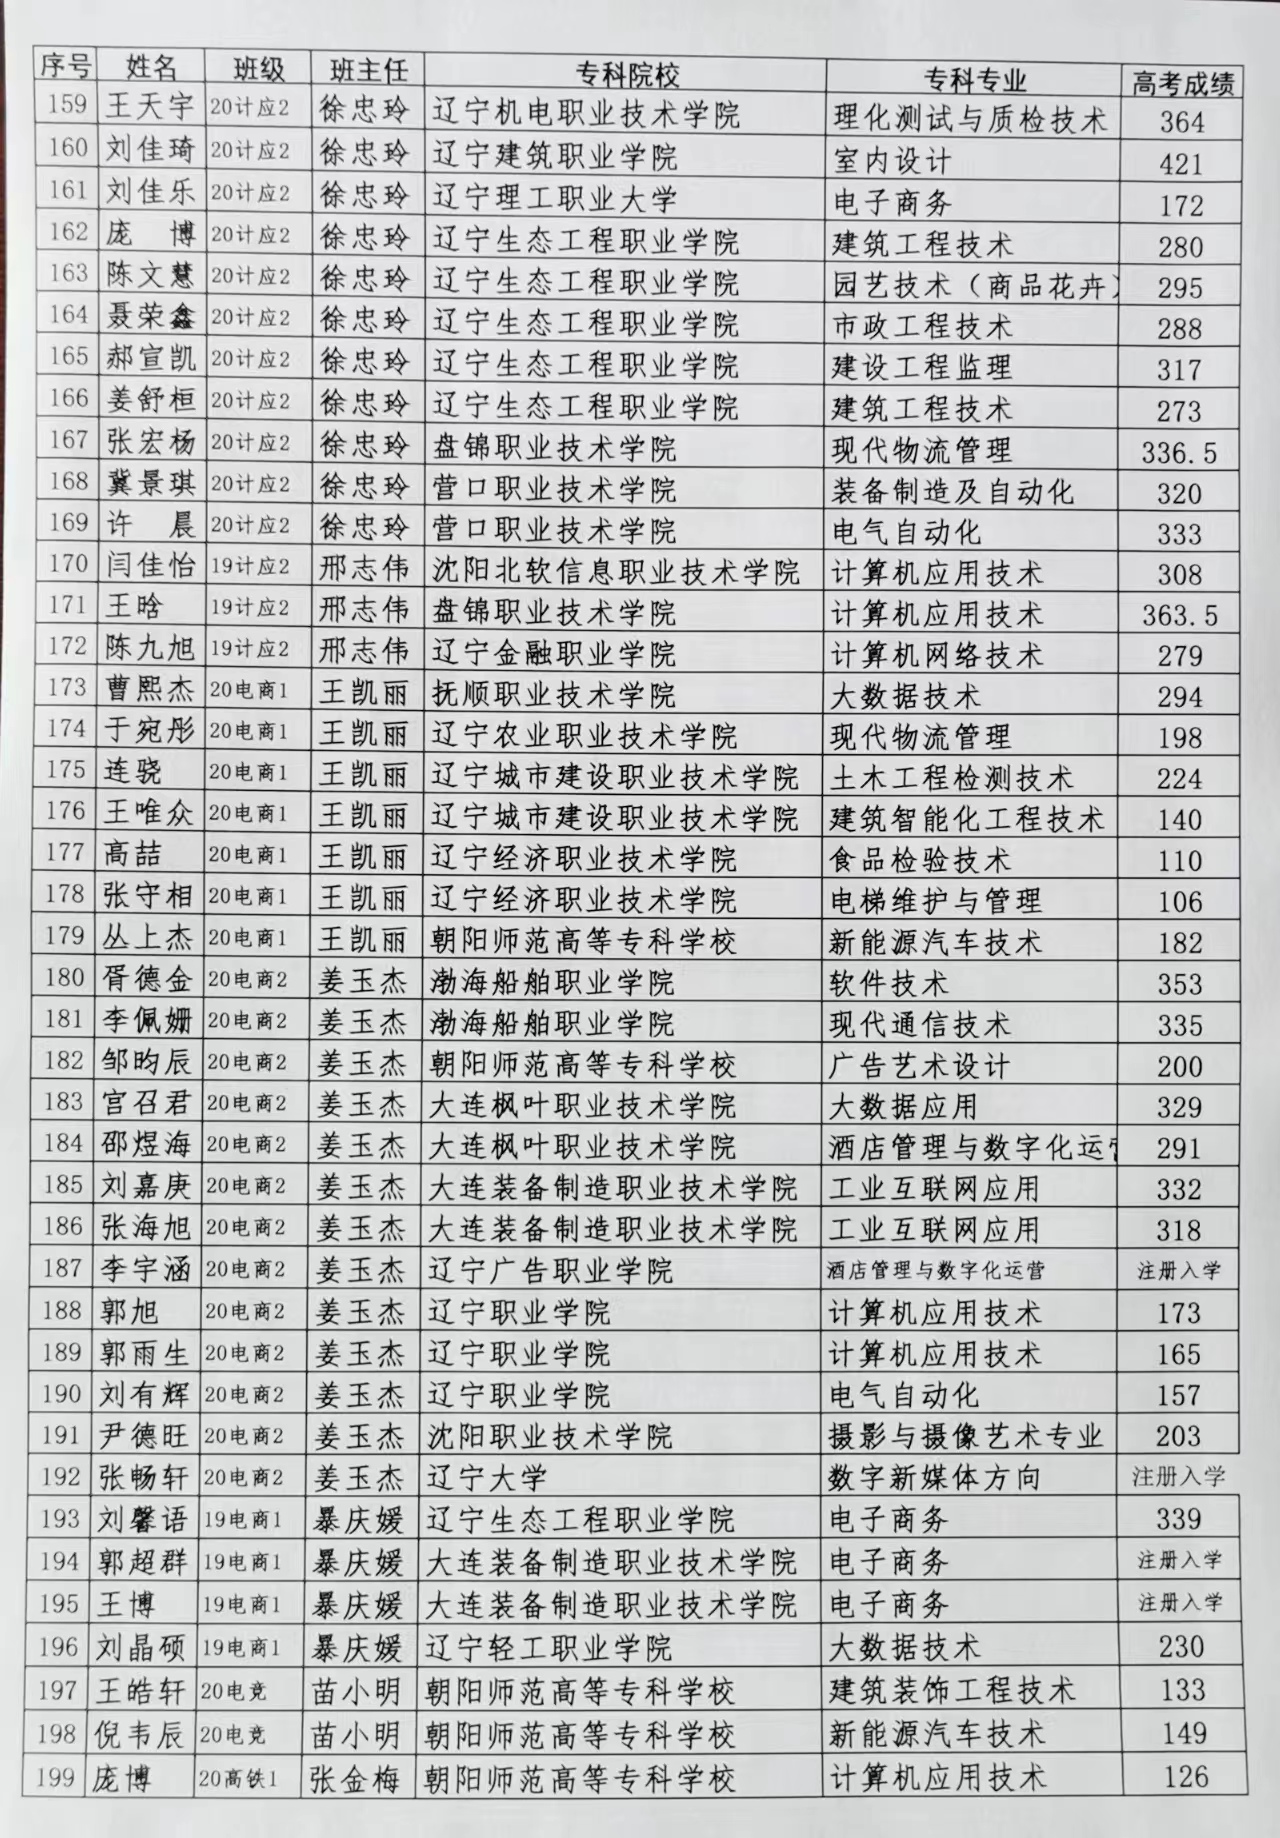 序号 姓名 班级 班主任 专科院校 专科专业 高考成绩
159 王天宇 20计应2 徐忠玲 辽宁机电职业技术学院 理化测试与质检技术 364
160 刘佳琦 20计应2 徐忠玲 辽宁建筑职业学院 室内设计 421
161 刘佳乐 20计应2 徐忠玲 辽宁理工职业大学 电子商务 172
162 庞 博 20计应2 徐忠玲 辽宁生态工程职业学院 建筑工程技术 280
163 陈文慧 20计应2 徐忠玲 辽宁生态工程职业学院 园艺技术（商品花卉） 295
164 聂荣鑫 20计应2 徐忠玲 辽宁生态工程职业学院 市政工程技术 288
165 郝宣凯 20计应2 徐忠玲 辽宁生态工程职业学院 建设工程监理 317
166 姜舒桓 20计应2 徐忠玲 辽宁生态工程职业学院 建筑工程技术 273
167 张宏杨 20计应2 徐忠玲 盘锦职业技术学院 现代物流管理 336.5
168 冀景琪 20计应2 徐忠玲 营口职业技术学院 装备制造及自动化 320
169 许 晨 20计应2 徐忠玲 营口职业技术学院 电气自动化 333
170 闫佳怡 19计应2 邢志伟 沈阳北软信息职业技术学院 计算机应用技术 308
171 王晗 19计应2 邢志伟 盘锦职业技术学院 计算机应用技术 363.5
172 陈九旭 19计应2 邢志伟 辽宁金融职业学院 计算机网络技术 279
173 曹熙杰 20电商1 王凯丽 抚顺职业技术学院 大数据技术 294
174 于宛彤 20电商1 王凯丽 辽宁农业职业技术学院 现代物流管理 198
175 连骁 20电商1 王凯丽 辽宁城市建设职业技术学院 土木工程检测技术 224
176 王唯众 20电商1 王凯丽 辽宁城市建设职业技术学院 建筑智能化工程技术 140
177 高喆 20电商1 王凯丽 辽宁经济职业技术学院 食品检验技术 110
178 张守相 20电商1 王凯丽 辽宁经济职业技术学院 电梯维护与管理 106
179 丛上杰 20电商1 王凯丽 朝阳师范高等专科学校 新能源汽车技术 182
180 胥德金 20电商2 姜玉杰 渤海船舶职业学院 软件技术 353
181 李佩姗 20电商2 姜玉杰 渤海船舶职业学院 现代通信技术 335
182 邹昀辰 20电商2 姜玉杰 朝阳师范高等专科学校 广告艺术设计 200
183 宫召君 20电商2 姜玉杰 大连枫叶职业技术学院 大数据应用 329
184 邵煜海 20电商2 姜玉杰 大连枫叶职业技术学院 酒店管理与数字化运营 291
185 刘嘉庚 20电商2 姜玉杰 大连装备制造职业技术学院 工业互联网应用 332
186 张海旭 20电商2 姜玉杰 大连装备制造职业技术学院 工业互联网应用 318
187 李宇涵 20电商2 姜玉杰 辽宁广告职业学院 酒店管理与数字化运营 注册入学
188 郭旭 20电商2 姜玉杰 辽宁职业学院 计算机应用技术 173
189 郭雨生 20电商2 姜玉杰 辽宁职业学院 计算机应用技术 165
190 刘有辉 20电商2 姜玉杰 辽宁职业学院 电气自动化 157
191 尹德旺 20电商2 姜玉杰 沈阳职业技术学院 摄影与摄像艺术专业 203
192 张畅轩 20电商2 姜玉杰 辽宁大学 数字新媒体方向 注册入学
193 刘馨语 19电商1 暴庆媛 辽宁生态工程职业学院 电子商务 339
194 郭超群 19电商1 暴庆媛 大连装备制造职业技术学院 电子商务 注册入学
195 王博 19电商1 暴庆媛 大连装备制造职业技术学院 电子商务 注册入学
196 刘晶硕 19电商1 暴庆媛 辽宁轻工职业学院 大数据技术 230
197 王皓轩 20电竞 苗小明 朝阳师范高等专科学校 建筑装饰工程技术 133
198 倪韦辰 20电竞 苗小明 朝阳师范高等专科学校 新能源汽车技术 149
199 庞博 20高铁1 张金梅 朝阳师范高等专科学校 计算机应用技术 126